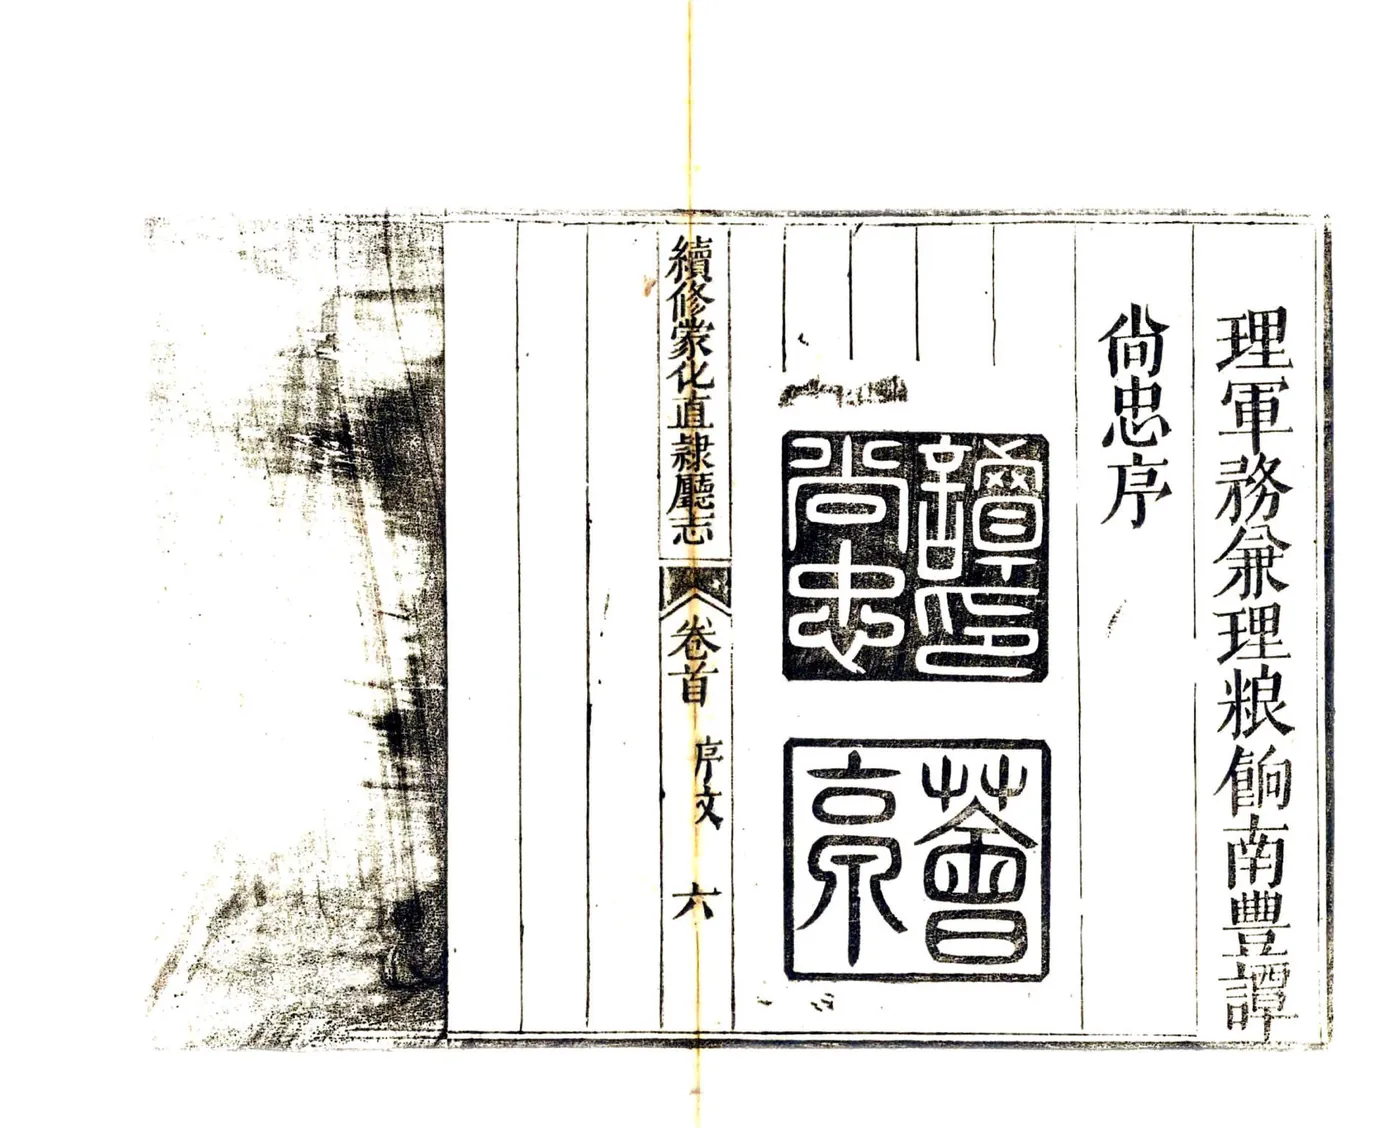 理軍務兼理粮餉南豐譚
尙忠序
譚印
尙忠
薈
亭
續修蒙化直隸廳志
卷首
序文
六